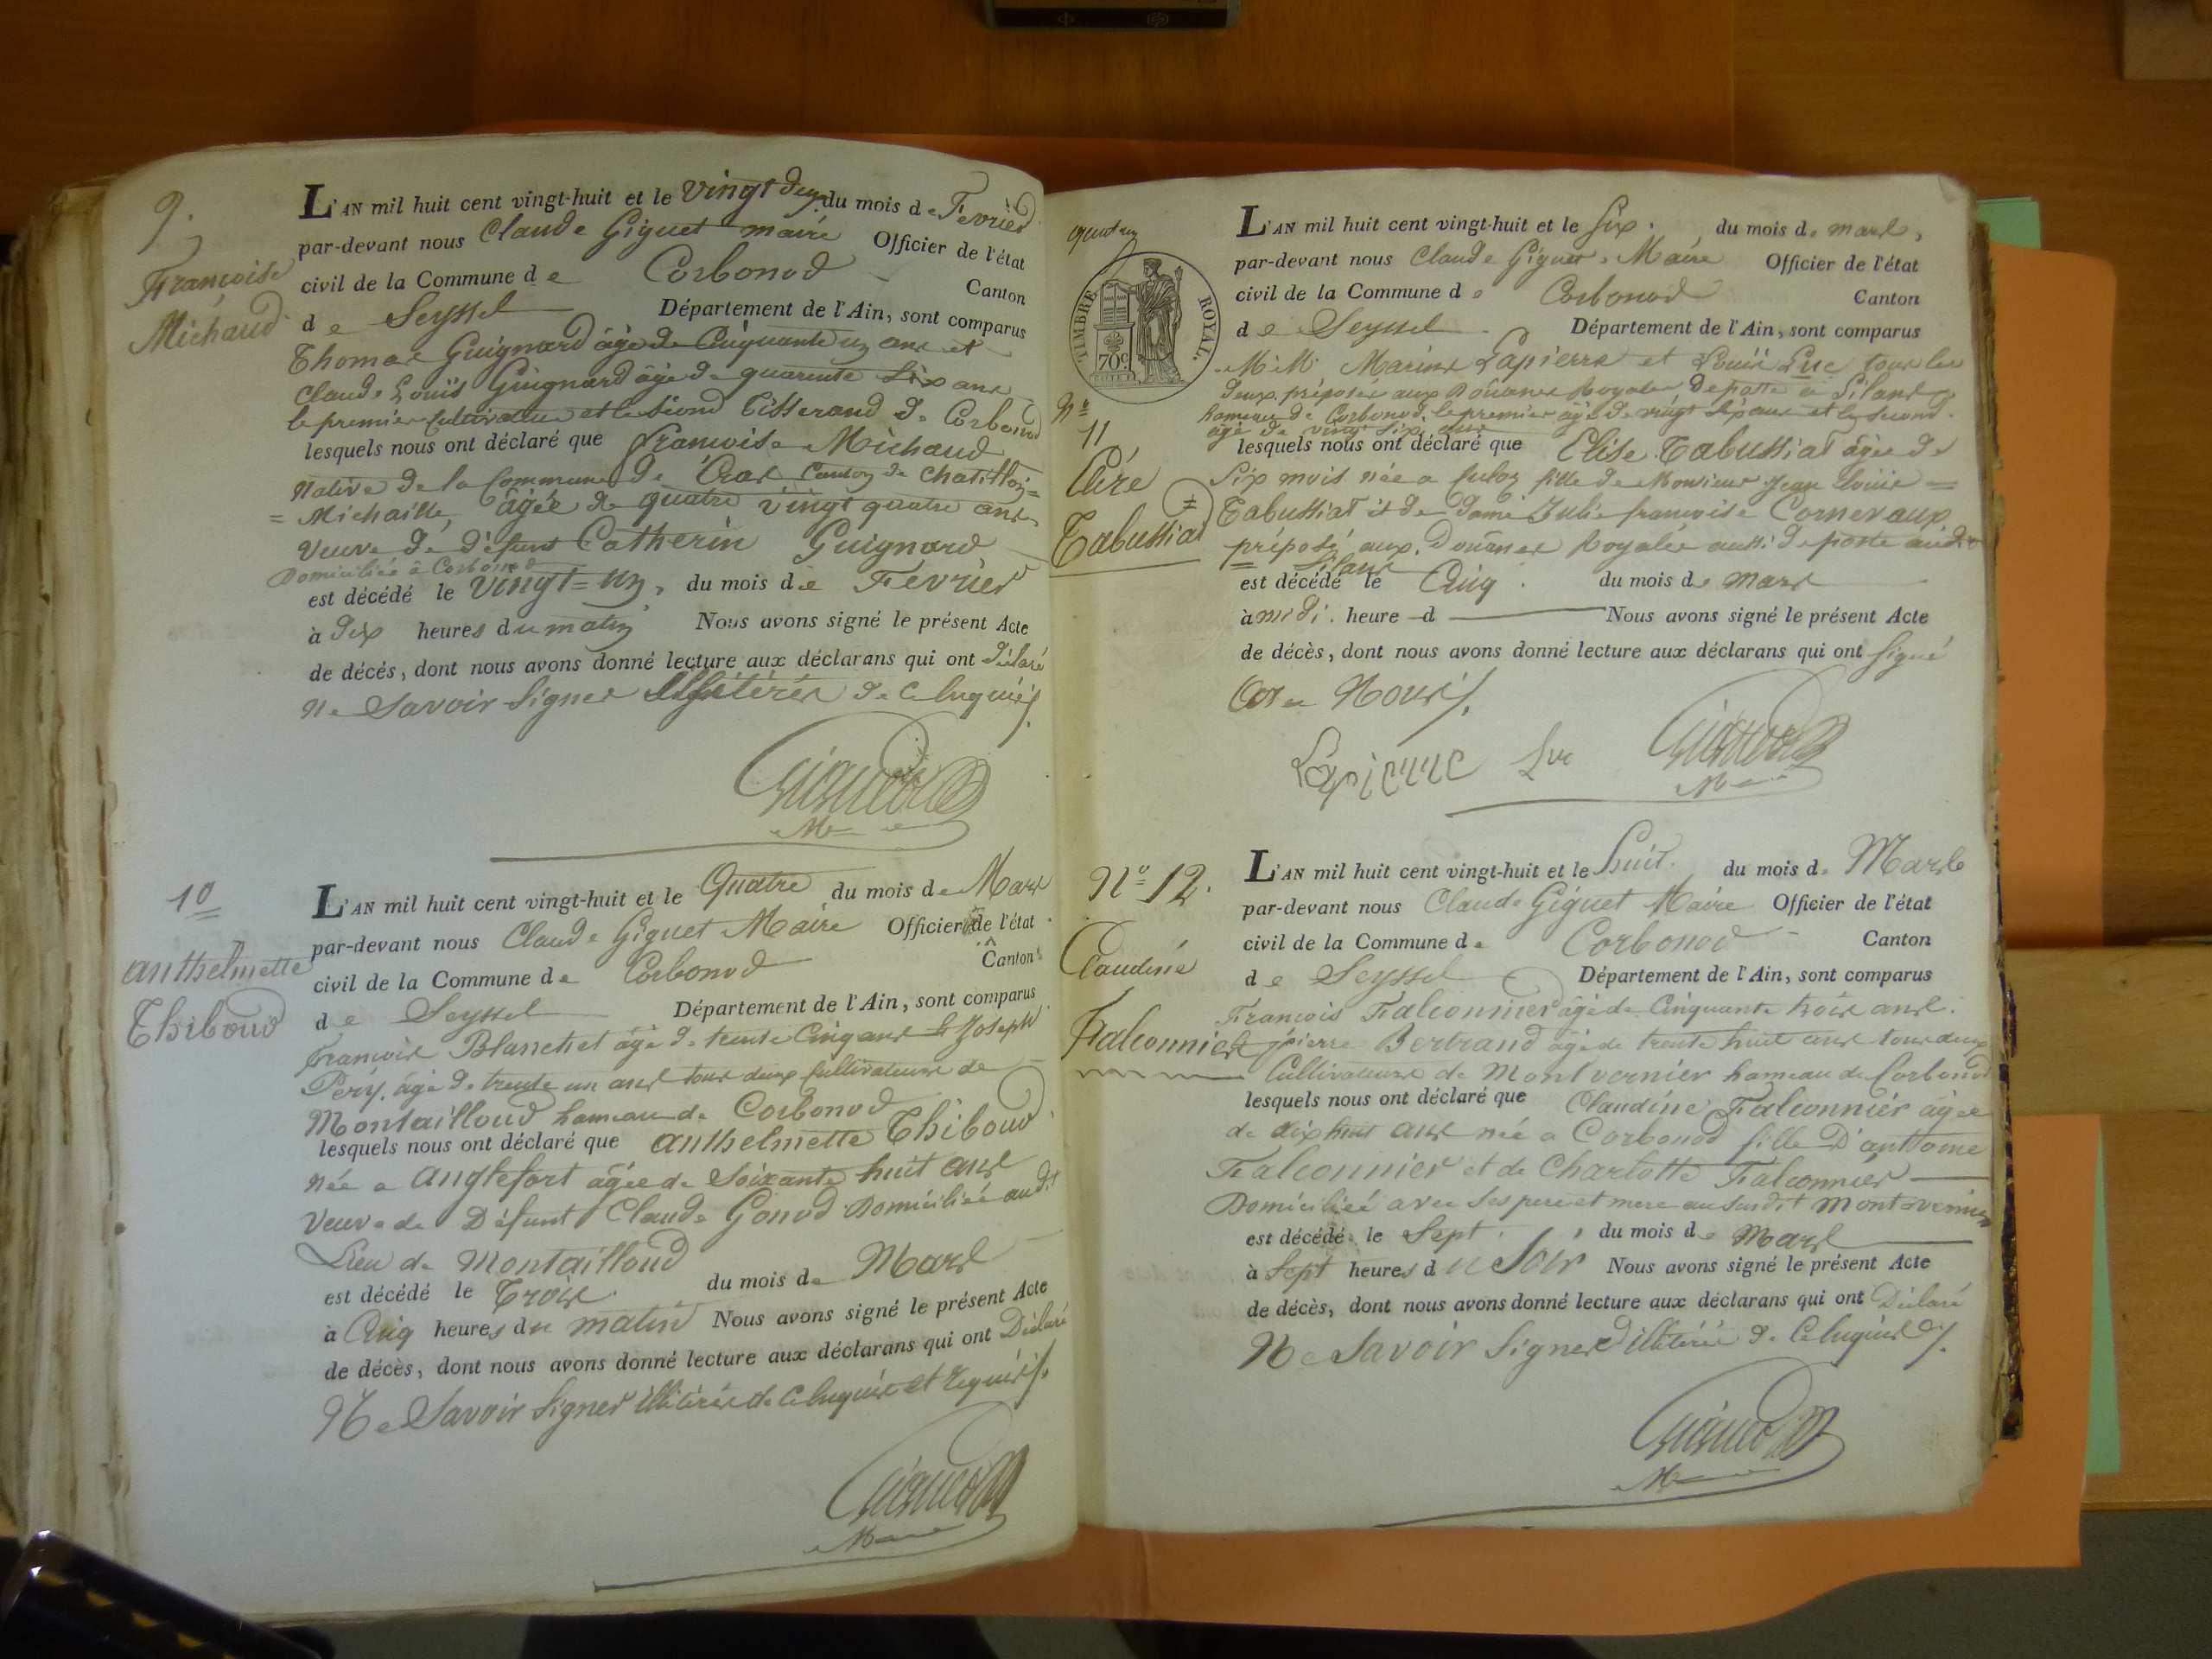 9.
Françoise
Michaud
L'AN mil huit cent vingt-huit et le vingt deux du mois de Fevrier
par-devant nous Claude Giguet maire Officier de l'état
civil de la Commune de Corbonod Canton
de Seyssel Département de l'Ain, sont comparus
Thomas Guignard âgé de Cinquante un ans et
Claude Louis Guignard âgé de quarente Six ans
le premier Cultivateur et le Second Tisserand de Corbonod
lesquels nous ont déclaré que françoise Michaud
Native de la Commune de Craz Canton de Chatillon=
=Michaille, âgée de quatre vingt quatre ans
Veuve de Défunt Catherin Guignard
Domiciliée à Corbonod
est décédé le vingt=un, du mois de Fevrier
à Dix heures du matin Nous avons signé le présent Acte
de décés, dont nous avons donné lecture aux déclarans qui ont Déclaré
Ne Savoir Signer de ce Enquis/.
Giguet
M
10
anthelmette
Thiboud
L'AN mil huit cent vingt-huit et le Quatre du mois de Mars
par-devant nous Claude Giguet Maire Officier de l'état
civil de la Commune de Corbonod Canton
de Seyssel Département de l'Ain, sont comparus
françois Blanchet âgé de trente Cinq ans & Joseph
Péry, âgé de trente un ans tous deux Cultivateurs de
Montailloud hameau de Corbonod
lesquels nous ont déclaré que anthelmette Thiboud
née a anglefort âgée de Soixante huit ans
Veuve de Défunt Claude Gonod Domiciliée audit
Lieu de Montailloud
est décédé le Trois. du mois de Mars
à Cinq heures du matin Nous avons signé le présent Acte
de décès, dont nous avons donné lecture aux déclarans qui ont Déclaré
Ne Savoir Signer illitérés de ce Enquis et Requis/.
Giguet
M
TIMBRE ROYAL.
70c
No
11
Tabussiat
L'AN mil huit cent vingt-huit et le Six. du mois de mars,
par-devant nous Claude Giguet, Maire Officier de l'état
civil de la Commune de Corbonod Canton
de Seyssel Département de l'Ain, sont comparus
MM. Marin Lapierre et Louis Luc tous les
deux préposés aux Douanes Royales de poste a Silans
hameau de Corbonod, le premier âgé de vingt Six ans et le Second
âgé de vingt Six ans
lesquels nous ont déclaré que Elise Tabussiat âgée de
Six mois née a fille de Monsieur Jean Louis =
Tabussiat et de dame Julie françoise Cornevaux
préposé aux Douanes Royales aussi de poste audit
= Silans
est décédé le Cinq. du mois de mars
à midi. heure d Nous avons signé le présent Acte
de décès, dont nous avons donné lecture aux déclarans qui ont Signé
Nous/.
Lapierre Luc Giguet
M
No 12.
Claudine
Falconnier
L'AN mil huit cent vingt-huit et le huit. du mois de Mars
par-devant nous Claude Giguet Maire Officier de l'état
civil de la Commune de Corbonod Canton
de Seyssel Département de l'Ain, sont comparus
François Falconnier âgé de Cinquante trois ans.
& pierre Bertrand âgé de trente huit ans tous deux
Cultivateurs de Montvernier hameau de Corbonod
lesquels nous ont déclaré que Claudine Falconnier âgée
de dix huit ans née a Corbonod fille D'anthome
Falconnier et de Charlotte Falconnier
Domiciliée avec Ses pere et mere au Susdit Montvernier
est décédé le Sept. du mois de Mars
à Sept heures du Soir Nous avons signé le présent Acte
de décès, dont nous avons donné lecture aux déclarans qui ont Déclaré
Ne Savoir Signer illitérés de ce Enquis/.
Giguet
M